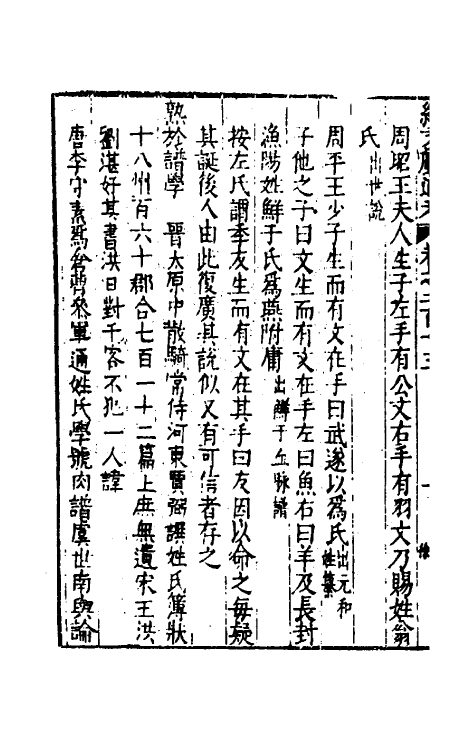 周昭王夫人生子左手有公文右手有羽文乃賜姓翁
氏出世說
周平王少子生而有文在手曰武遂以爲氏出元和姓纂
子他之子曰文生而有文在手左曰魚右曰羊及長封
漁陽姓鮮于氏爲燕附庸出鮮于血脉譜
按左氏謂季友生而有文在其手曰友因以命之每疑
其誕後人由此復廣其說似又有可信者存之
熟於譜學 晉太原中散騎常侍河東賈弼譔姓氏簿狀
十八州百六十郡合七百一十二篇上庶無遺宋王洪
劉湛好其書洪日對千客不犯一人諱
唐李守素爲倉曹參軍通姓氏學號肉譜虞世南與論